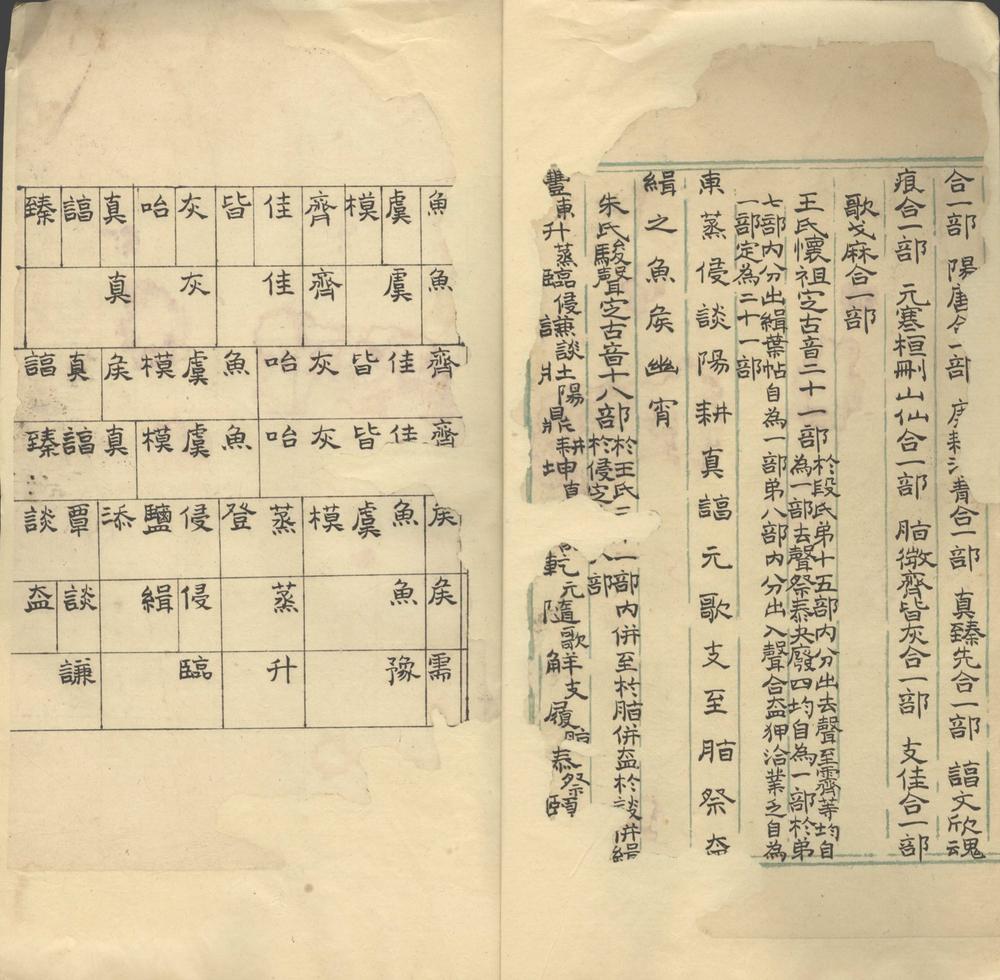 合一部 陽唐合一部 庚耕清青合一部 真臻先合一部 諄文欣魂
痕合一部 元寒桓刪山仙合一部 脂微齊皆灰合一部 支佳合一部
歌戈麻合一部
王氏懷祖定古音二十一部
於段氏弟十五部內分出去聲至霽等均自
為一部去聲祭泰夬廢四均自為一部於弟
七部內分出緝葉帖自為一部弟八部內分出入聲合盍狎洽業乏自為
一部定為二十一部
東蒸侵談陽耕真諄元歌支至脂祭盍
緝之魚矦幽宵
朱氏駿聲定古音十八部
於王氏二一部內併至於脂併盍於談併緝
於侵定部
豐東升蒸臨侵謙談壯陽鼎耕坤真乾元隨歌解支履脂泰祭頤
魚虞模齊佳皆灰咍真諄臻
魚虞齊佳灰真
齊佳皆灰咍魚虞模矦真諄
齊佳皆灰咍魚虞模真諄臻
矦魚虞模蒸登侵鹽添覃談
矦魚蒸侵緝談盍
需豫升臨謙